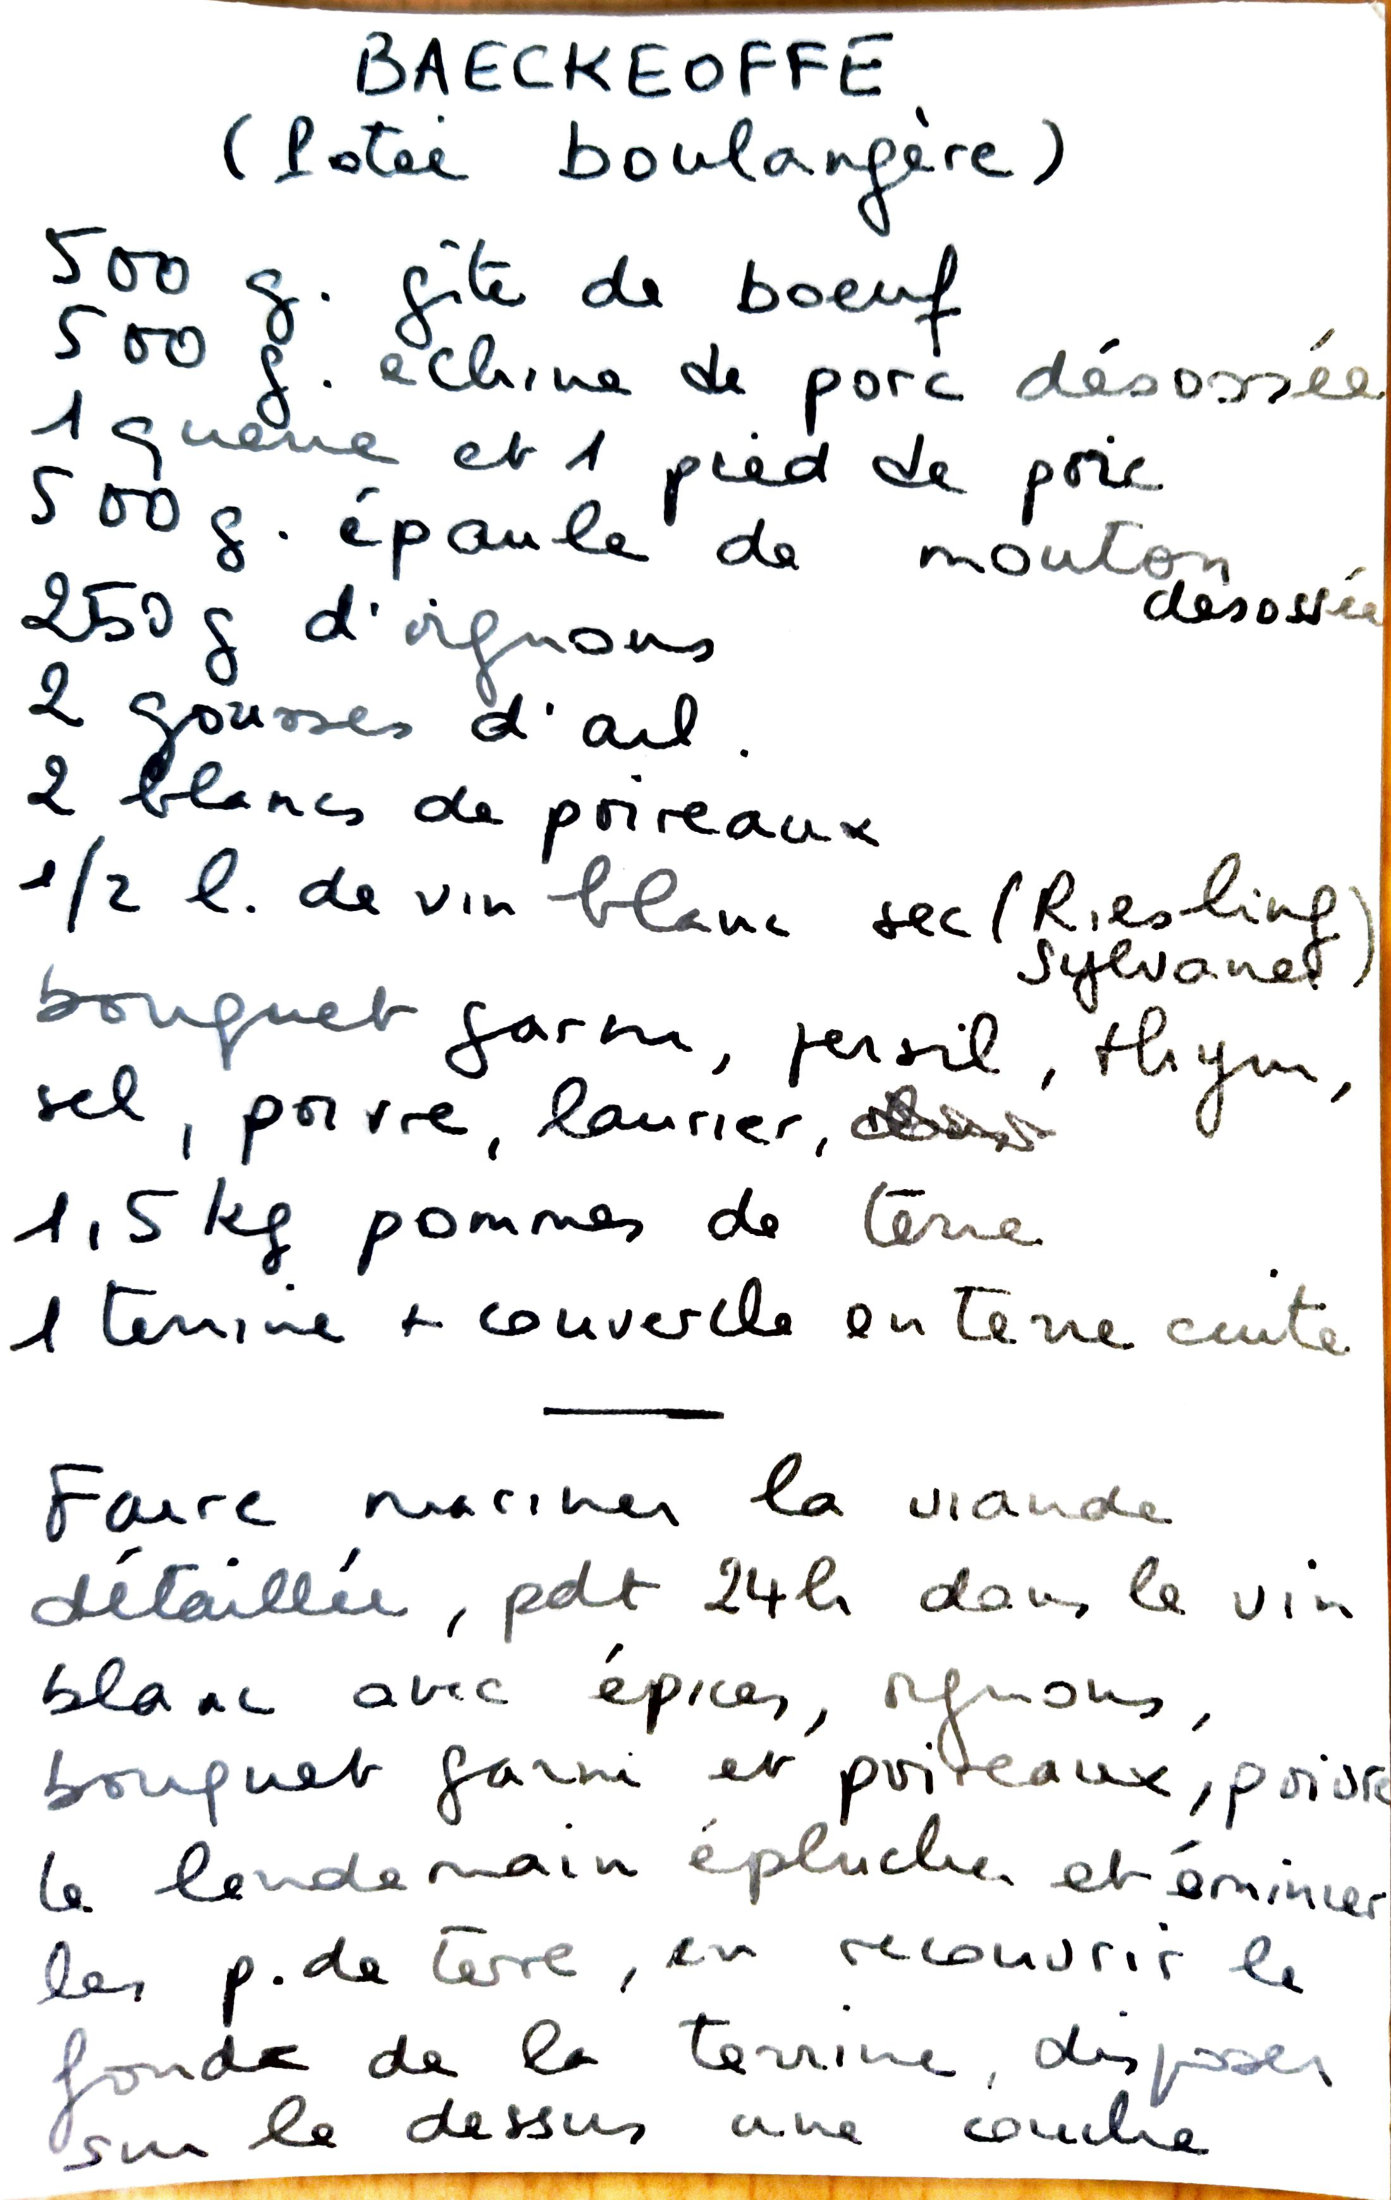 BAECKEOFFE
(Potée boulangère)
500 g. gîte de boeuf
500 g. échine de porc désossée
1 queue et 1 pied de porc
500 g. épaule de mouton
desossée
250 g d'oignons
2 gousses d'ail.
2 blancs de poireaux
1/2 l. de vin blanc sec (Riesling)
Sylvaner)
bouquet garni, persil, thym,
sel, poivre, laurier,
1,5 kg pommes de terre
1 terrine + couvercle en terre cuite
Faire mariner la viande
détaillée, pdt 24h dans le vin
blanc avec épices, oignons,
bouquet garni et poireaux, poivre
le lendemain éplucher et émincer
les p. de terre, en recouvrir le
fond de la terrine, disposer
sur le dessus une couche